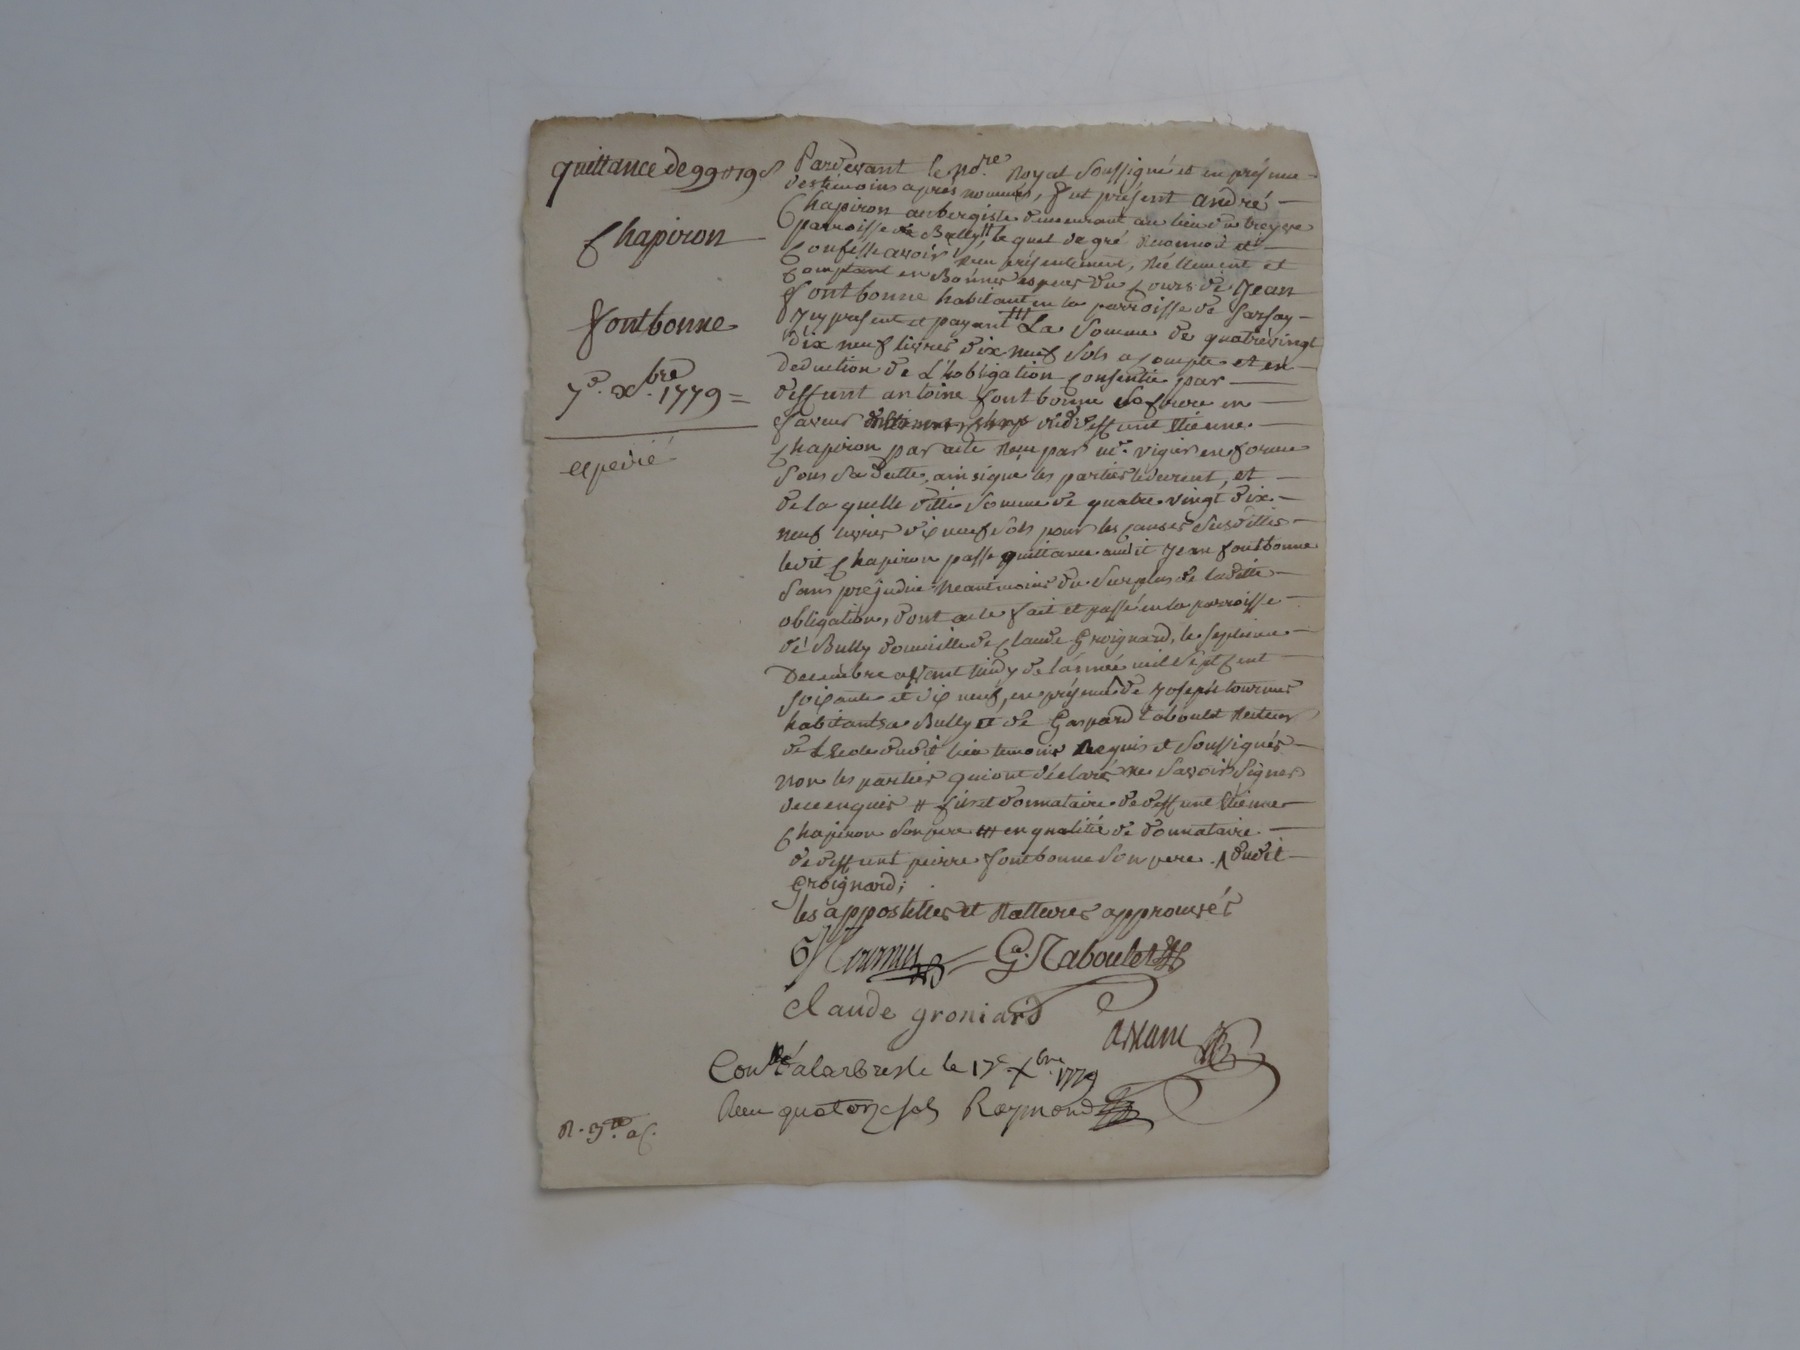 quittance de 99 # 19 s
Chapiron
fontbonne
7e. xbre. 1779 =
expedié
Pardevant le no.re Royal soussigné et en présence
des témoins apres nommés, fut présent andré
Chapiron aubergiste demeurant au lieu du
parroisse de Bully # lequel de gré reconnoit et
Confesse avoir reçu présentement, réellement et
Comptant en Bonnes especes du Cours de Jean
fontbonne habitant en la parroisse de Sarsay
Icy present et payant ### La Somme de quatrevingt
dix neuf livres dix neuf sols a compte et en
deduction de L'hobligation consentie par
deffunt antoine fontbonne so frere en
faveur dud deffunt Etienne
Chapiron par acte reçu par me. vigier en forme
sous sa datte, ainsi que les parties le dirent, et
de la quelle ditte somme de quatre vingt dix
neuf livres dix neuf sols pour les causes susdittes
ledit Chapiron passe quittance audit Jean fontbonne
sans prejudice neantmoins du surplus de ladite
obligation, dont acte fait et passé en la parroisse
de Bully domicille de Claude Groignard, le septieme
Decembre avant midy de l'année mil sept cent
soixante et dix neuf, en présence de Joseph tournus
habitant a Bully et de Gaspard Raboulet Recteur
de L'Ecole dudit lieu temoins Requis et soussignés
non les parties qui ont déclaré ne savoir signer
de ce enquis # fils et donnataire de deffunt Etienne
Chapiron son pere ### en qualité de donnataire
de deffunt pierre fontbonne son pere . ^ dudit
Groignard;
les appostilles et Ratures approuvés
Tournus G. Raboulet
Claude groniard
Conllé a larbresle le 17e Xbre 1779
Recu quatorze sols Raymond